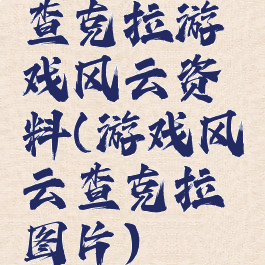 查克拉游
戏风云资
料(游戏风
云查克拉
图片)